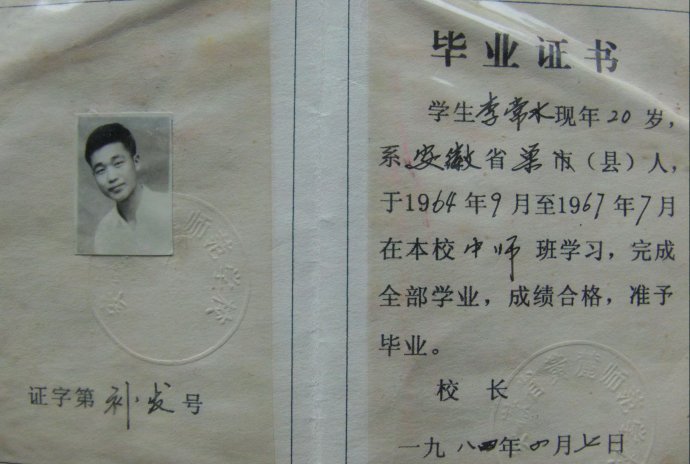 证字第补发号
毕业证书
学生李常水现年20岁，
系安徽省巢市（县）人，
于1964年9月至1967年7月
在本校中师班学习，完成
全部学业，成绩合格，准予
毕业。
校长
一九八四年四月七日
师范学校
师范学校